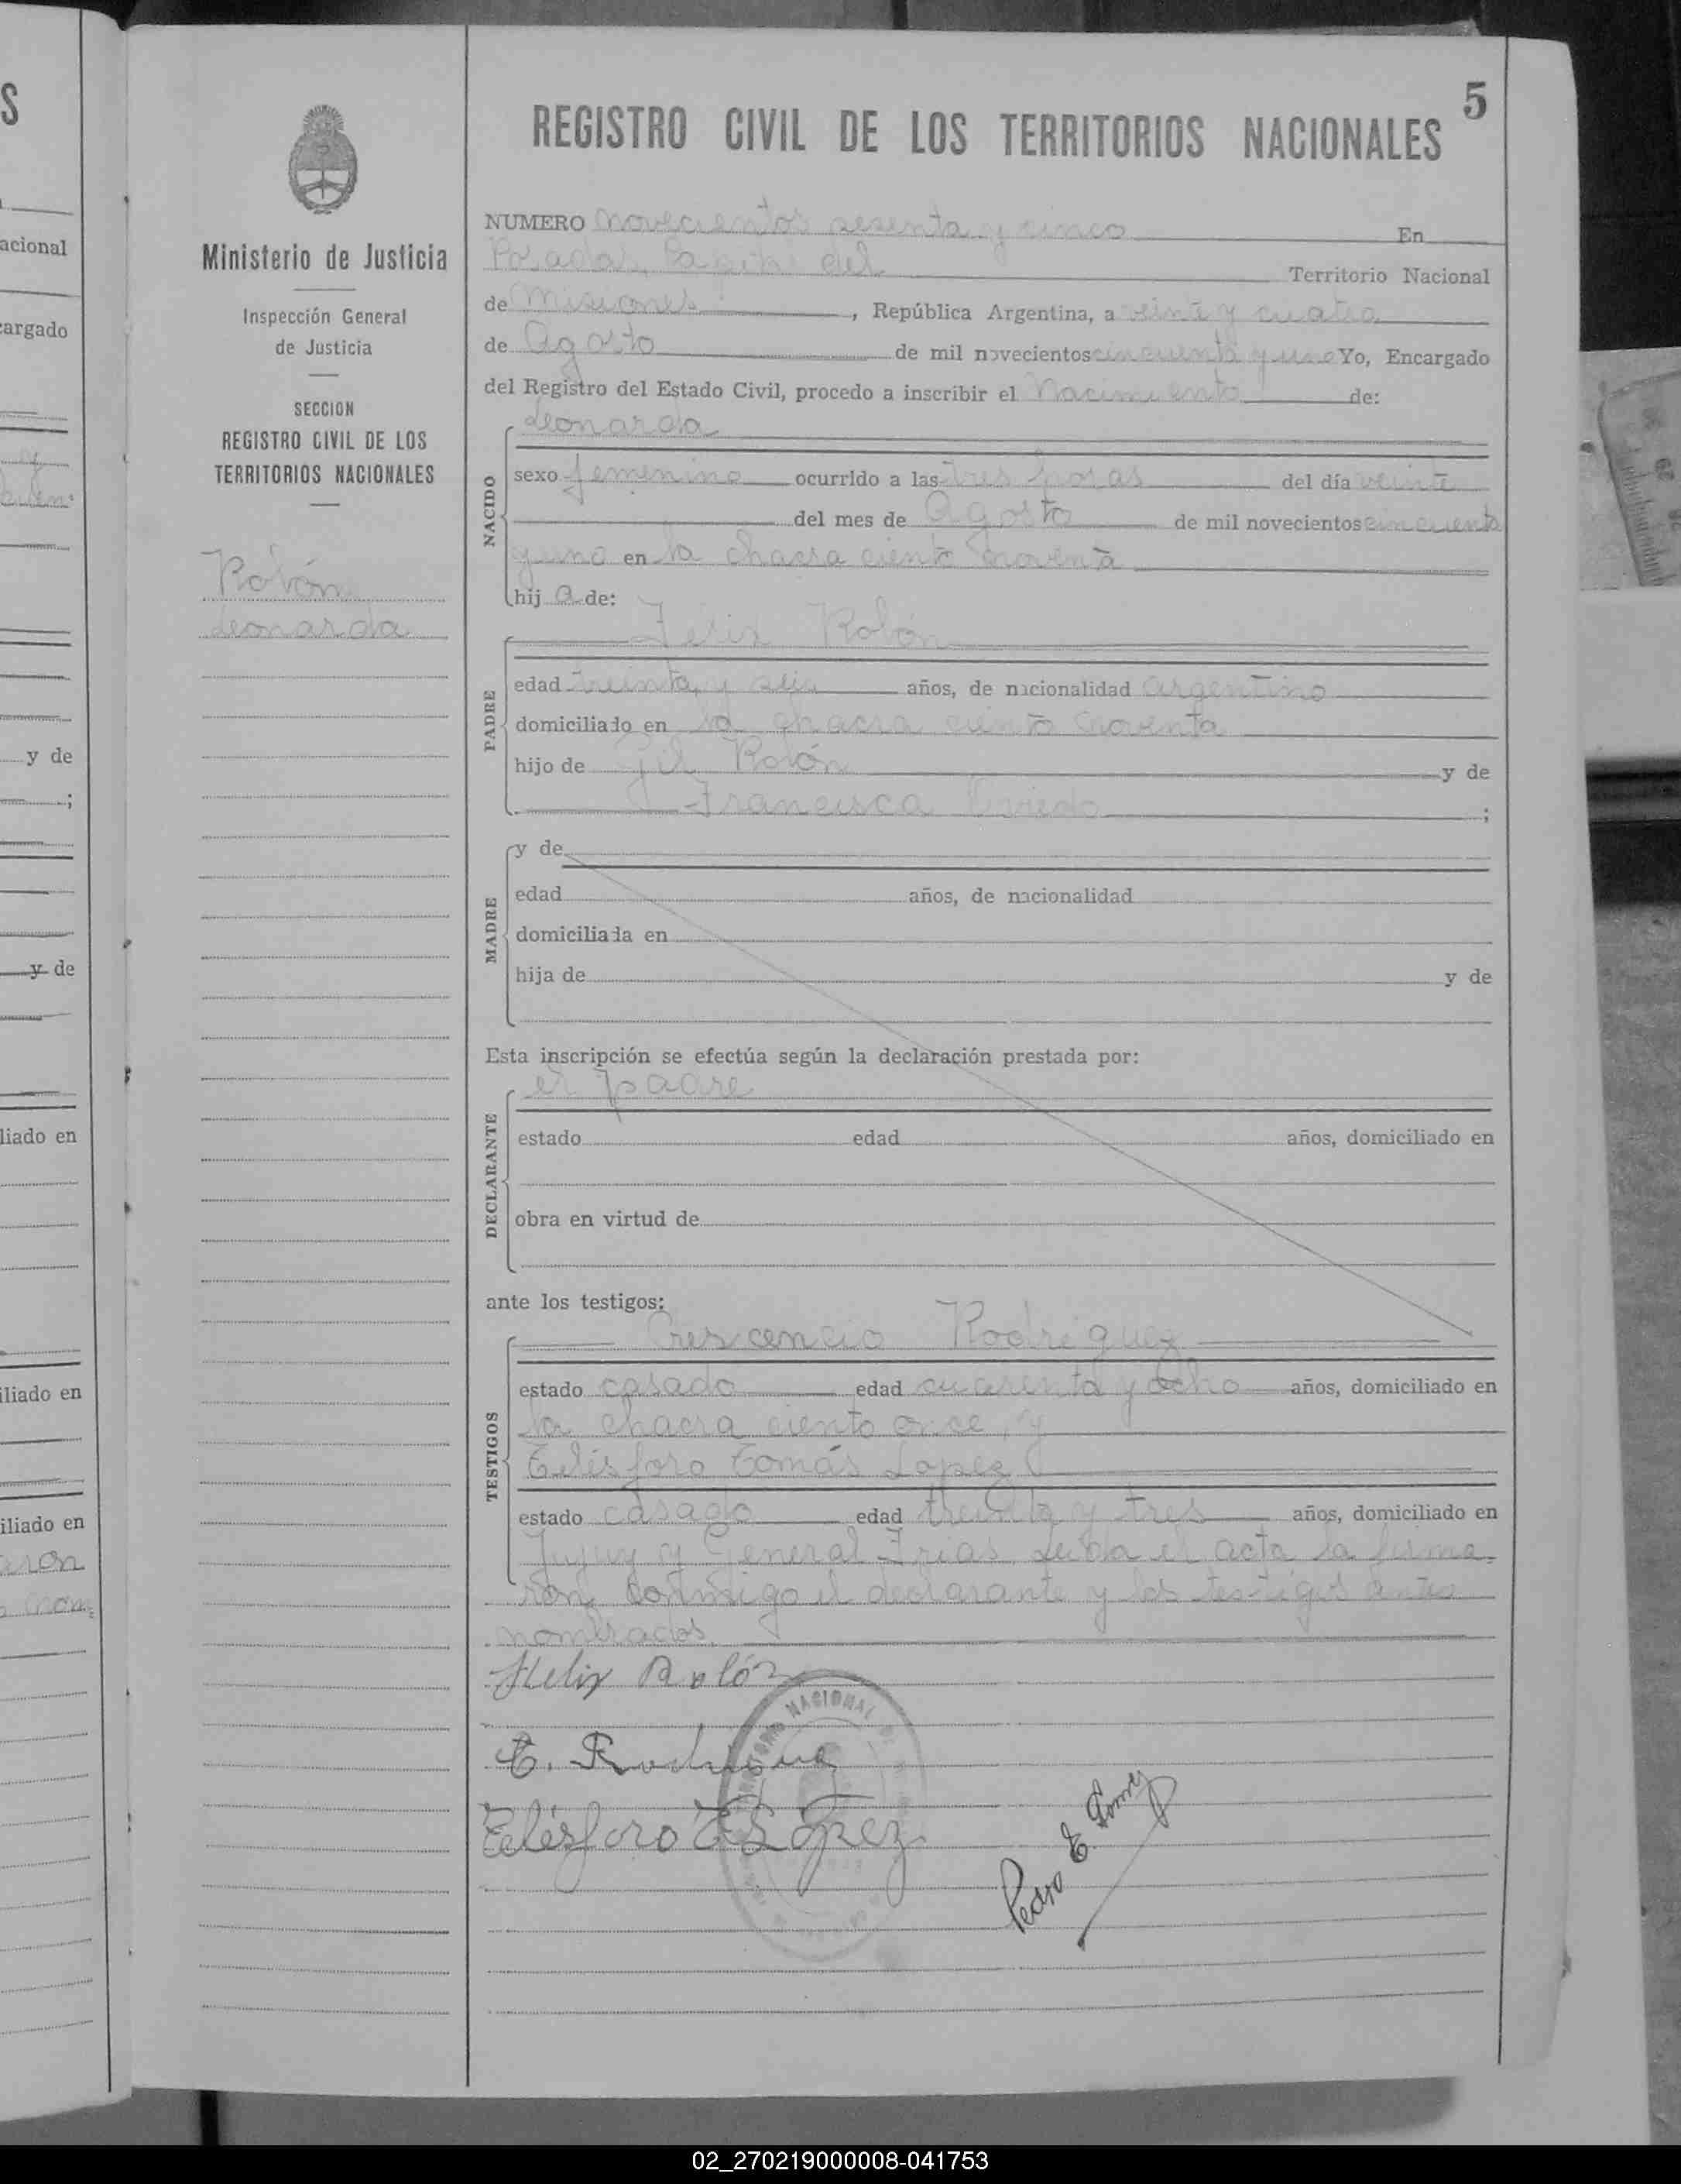 S
acional
cargado
y de
;
y de
liado en
iliado en
iliado en
Ministerio de Justicia
Inspección General
de Justicia
SECCION
REGISTRO CIVIL DE LOS
TERRITORIOS NACIONALES
Rolón
Leonarda
5
REGISTRO CIVIL DE LOS TERRITORIOS NACIONALES
NUMERO novecientos sesenta y cinco En
Posadas, Capital del Territorio Nacional
de Misiones, República Argentina, a veinte y cuatro
de Agosto de mil novecientos cincuenta y uno Yo, Encargado
del Registro del Estado Civil, procedo a inscribir el Nacimiento de:
NACIDO
Leonarda
sexo femenino ocurrido a las tres horas del día veinte
del mes de Agosto de mil novecientos cincuenta
y uno en la chacra ciento noventa
hij a de:
PADRE
Felix Rolón
edad treinta y seis años, de nacionalidad argentino
domiciliado en la chacra ciento noventa
hijo de Gil Rolón y de
Francisca Oviedo ;
MADRE
y de
edad años, de nacionalidad
domiciliada en
hija de y de
Esta inscripción se efectúa según la declaración prestada por:
DECLARANTE
el padre
estado edad años, domiciliado en
obra en virtud de
ante los testigos:
TESTIGOS
Crescencio Rodriguez
estado casado edad cuarenta y ocho años, domiciliado en
la chacra ciento once, y
Telésforo Tomás Lopez
estado casado edad treinta y tres años, domiciliado en
Jujuy y General Frias. Leida el acta la firma-
ron conmigo el declarante y los testigos antes
nombrados.
Felix Rolón
C. Rodriguez
Telésforo T. López
Pedro E. Gomez
NACIONAL
02_270219000008-041753